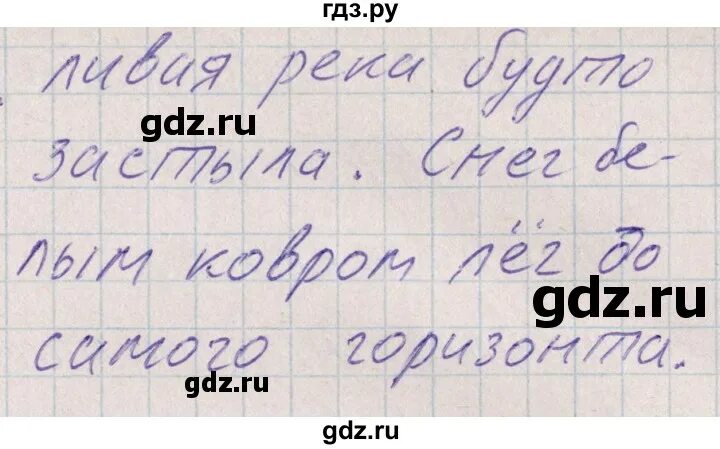 гдз.ру
ливая река будто
gdz.ru
застыла. Снег бе-
лым ковром лёг до
gdz.ru
самого горизонта.
gdz.ru
gdz.ru